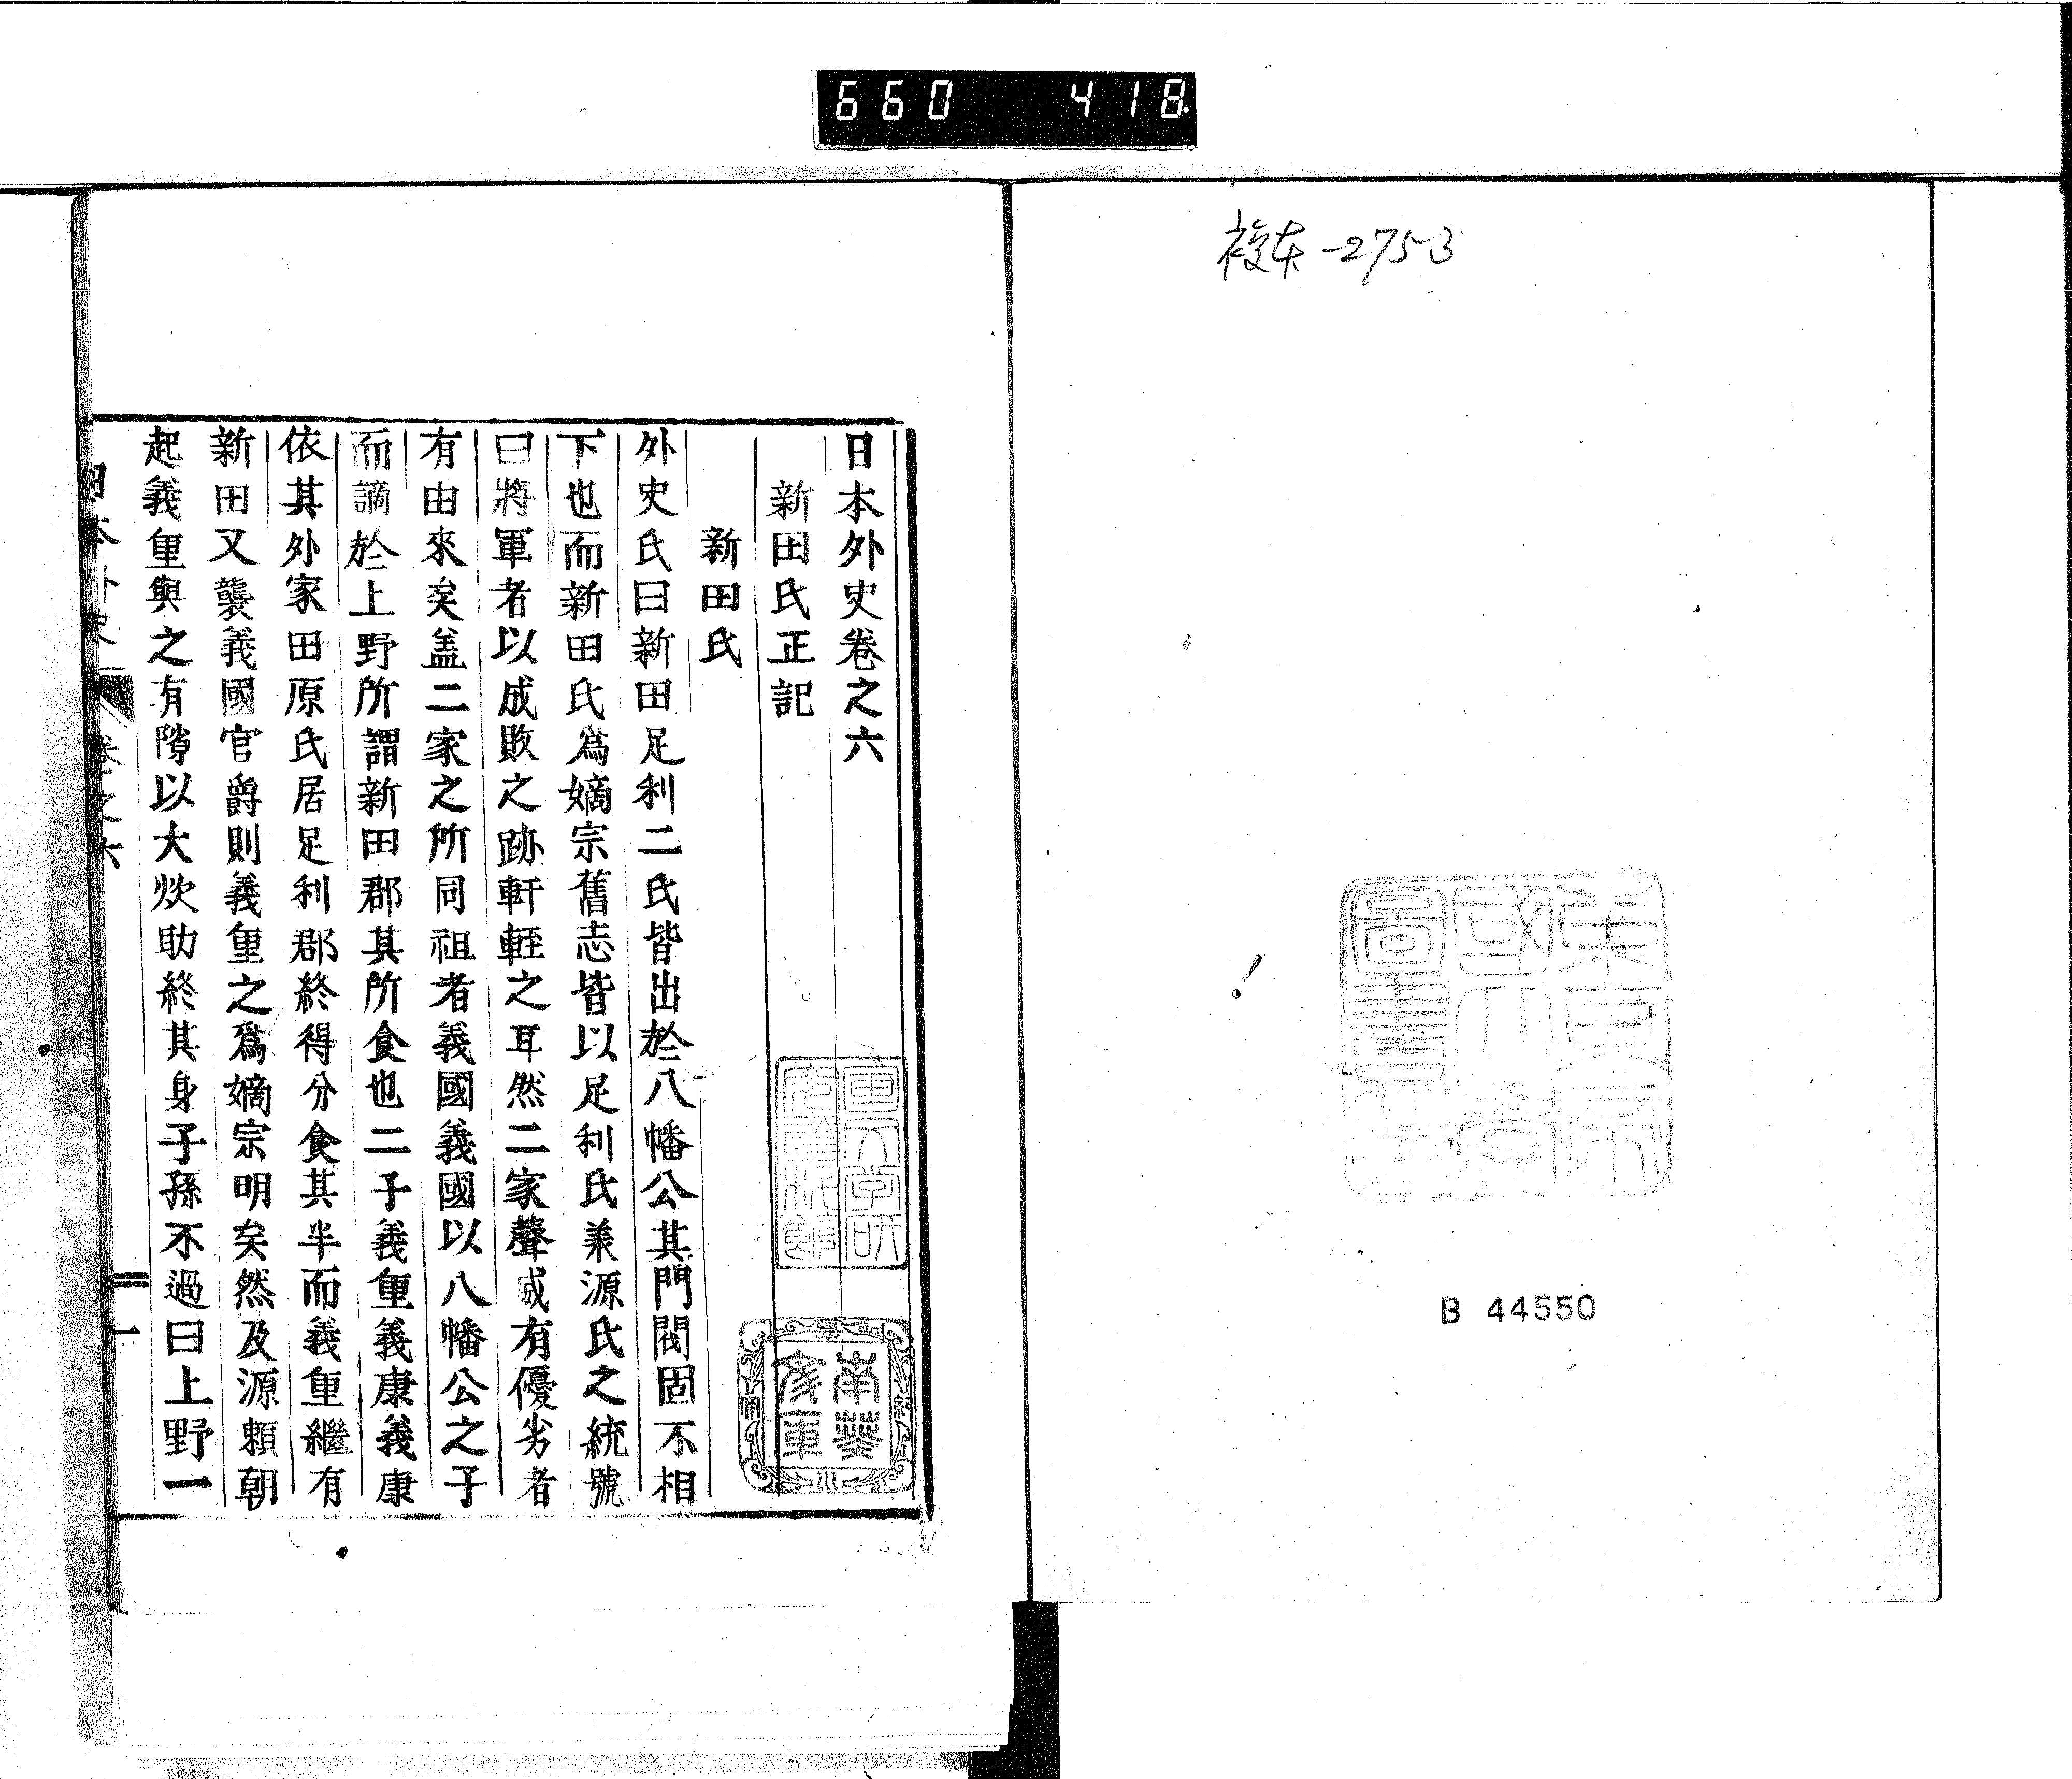 660 418
複本-2753
B 44550
日本外史卷之六
新田氏正記
新田氏
外史氏曰新田足利二氏皆出於八幡公其門閥固不相
下也而新田氏爲嫡宗舊志皆以足利氏兼源氏之統號
曰將軍者以成敗之跡軒輊之耳然二家聲威有優劣者
有由來矣盖二家之所同祖者義國義國以八幡公之子
而謫於上野所謂新田郡其所食也二子義重義康義康
依其外家田原氏居足利郡終得分食其半而義重繼有
新田又襲義國官爵則義重之爲嫡宗明矣然及源賴朝
起義重與之有隙以大炊助終其身子孫不過曰上野一
日本外史 卷之六 一
南葵文庫